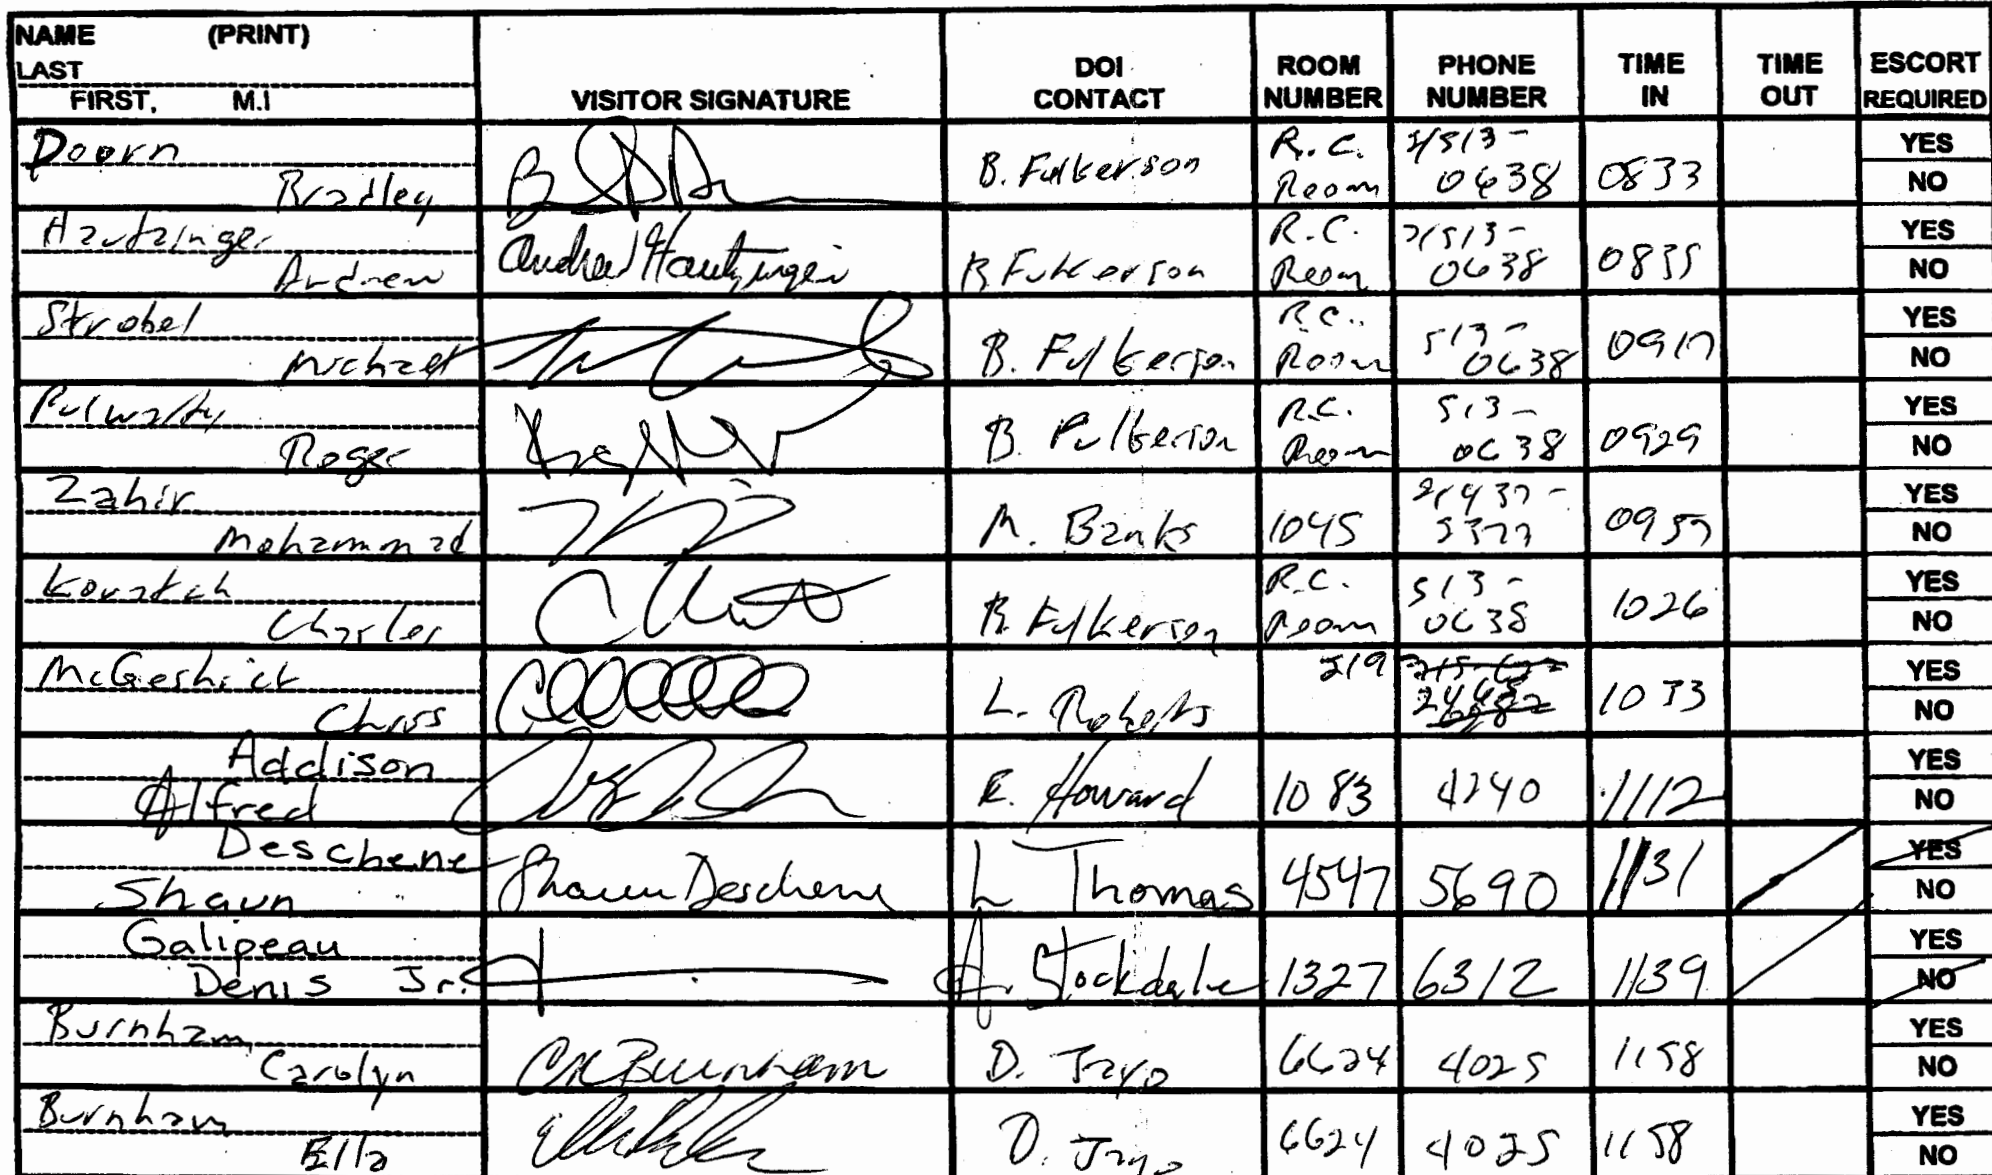 NAME (PRINT)
LAST
FIRST, M.I
VISITOR SIGNATURE
DOI CONTACT
ROOM NUMBER
PHONE NUMBER
TIME IN
TIME OUT
ESCORT REQUIRED
Doorn Bradley B. Fulkerson R.C. Room 513-0638 0833 YES NO
Hautzinger Andrew Andrew Hautzinger B Fulkerson R.C. Room 513-0638 0835 YES NO
Strobel Michael B. Fulkerson R.C. Room 513-0638 0917 YES NO
Pulwarty Roger B. Fulkerson R.C. Room 513-0638 0929 YES NO
Zahir Mohammad M. Banks 1045 0957 YES NO
Kovatch Charles B. Fulkerson R.C. Room 513-0638 1026 YES NO
Chris L. Roberts 219 1033 YES NO
Addison Alfred E. Howard 1083 4240 1112 YES NO
Deschene Shaun Shaun Deschene L Thomas 4547 5690 1131 YES NO
Galipeau Denis Jr. A. Stockdale 1327 6312 1139 YES NO
Burnham Carolyn Burnham D. Jayo 6624 4025 1158 YES NO
Burnham Ella D. Jayo 6624 4025 1158 YES NO